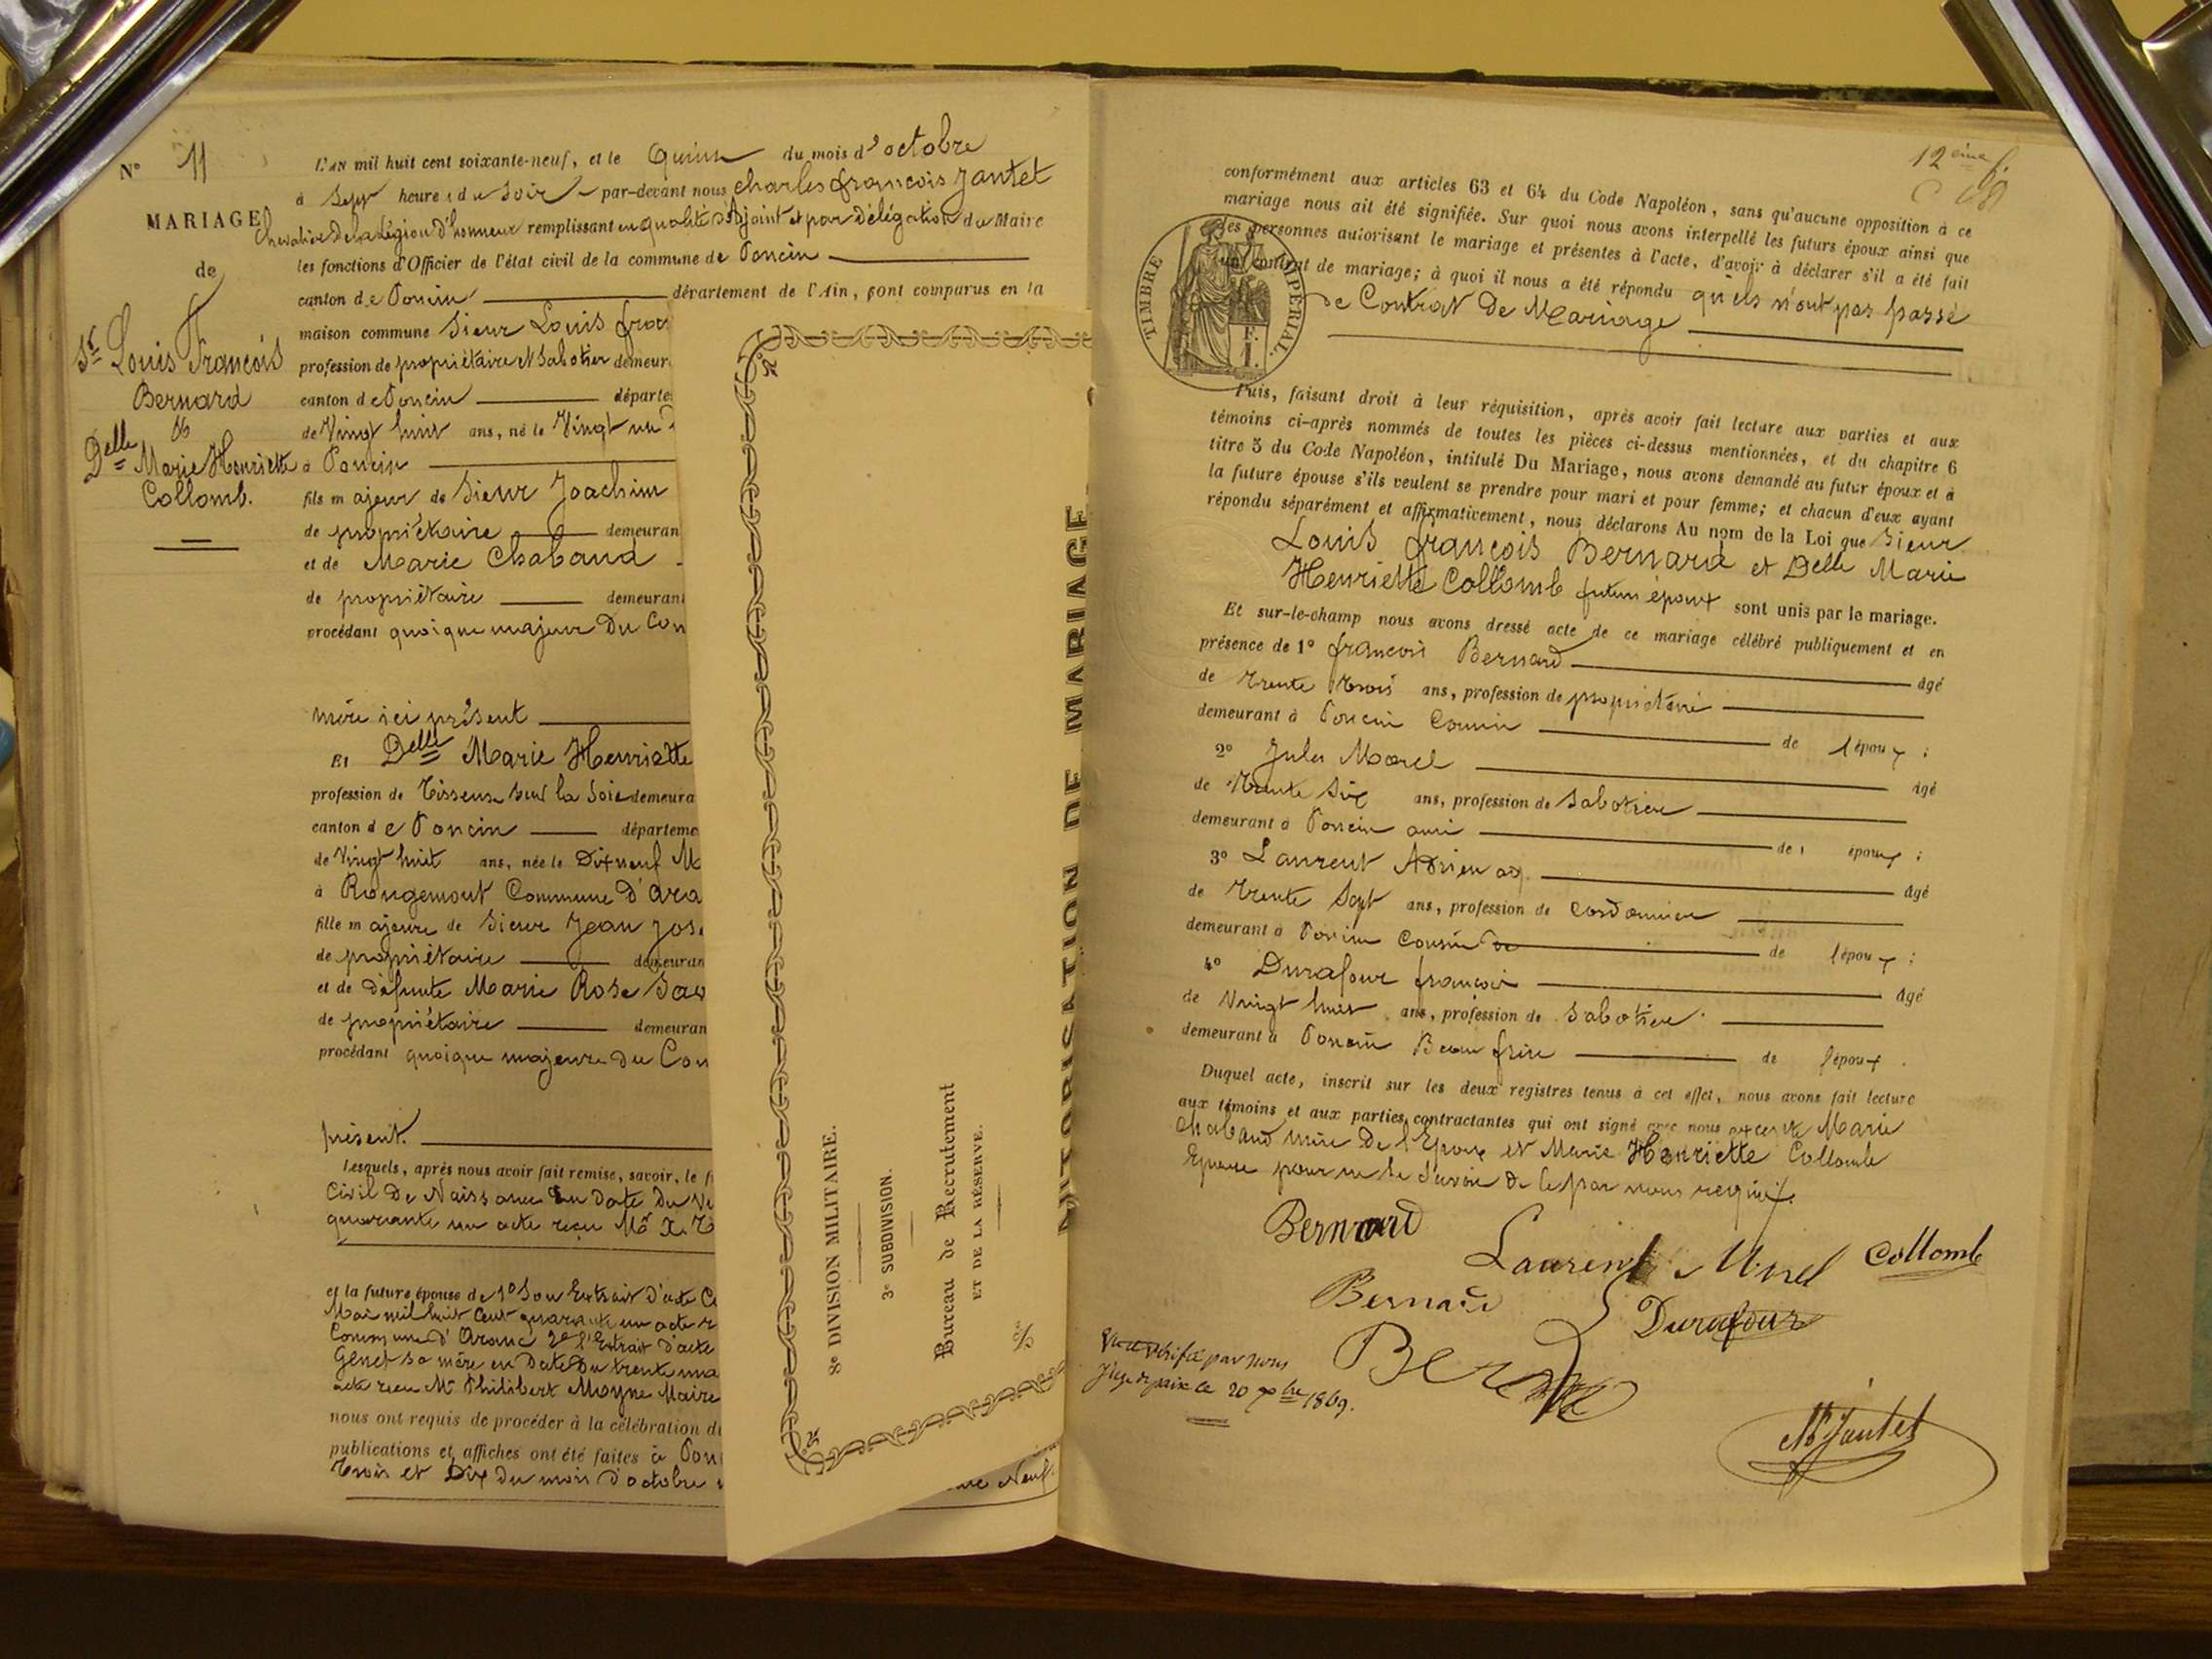 N° 11
MARIAGE
de
Sr Louis François
Bernard
&
Delle Marie Henriette
Collomb.
L'AN mil huit cent soixante-neuf, et le Quinze du mois d'octobre
à Sept heures du Soir par-devant nous charles françois Jantet
Chevalier De la Légion d'honneur remplissant en qualité d'Adjoint et par Délégation du Maire
les fonctions d'Officier de l'état civil de la commune de Poncin
canton de Poncin département de l'Ain, sont comparus en la
maison commune Sieur Louis fran
profession de propriétaire et Sabotier demeur
canton de Poncin départe
de Vingt huit ans, né le Vingt un
à Poncin
fils majeur de Sieur Joachim
de propriétaire demeuran
et de Marie Chaband
de propriétaire demeurant
procédant quoique majeur Du Con
mère ici présent
Et Delle Marie Henriette
profession de Tisseuse sur la Soie demeura
canton de Poncin départeme
de Vingt huit ans, née le Dix neuf M
à Rougemont Commune d'Ara
fille majeure de Sieur Jean Jos
de propriétaire demeuran
et de défunte Marie Rose Sav
de propriétaire demeuran
procédant quoique majeure du Con
présent.
Lesquels, après nous avoir fait remise, savoir, le f
Civil De Naissance En Date Du Ve
quarante un acte reçu Mr
et la future épouse de 1° Son Extrait D'acte Ci
Mai mil huit Cent quarante un acte r
Commune d'Aranc 2° l'Extrait D'acte
Genet sa mère en Date Du trente un
acte reçu Mr Philibert Moyne Maire
nous ont requis de procéder à la célébration d
publications et affiches ont été faites à Pon
Trois et Dix du mois d'octobre
Neuf.
AUTORISATION DE MARIAGE
8e DIVISION MILITAIRE.
3e SUBDIVISION.
Bureau de Recrutement
ET DE LA RÉSERVE.
12ème f.
conformément aux articles 63 et 64 du Code Napoléon, sans qu'aucune opposition à ce
mariage nous ait été signifiée. Sur quoi nous avons interpellé les futurs époux ainsi que
les personnes autorisant le mariage et présentes à l'acte, d'avoir à déclarer s'il a été fait
un contrat de mariage; à quoi il nous a été répondu qu'ils n'ont pas passé
de Contrat De Mariage
TIMBRE IMPERIAL.
F.
1.
Puis, faisant droit à leur réquisition, après avoir fait lecture aux parties et aux
témoins ci-après nommés de toutes les pièces ci-dessus mentionnées, et du chapitre 6
titre 5 du Code Napoléon, intitulé Du Mariage, nous avons demandé au futur époux et à
la future épouse s'ils veulent se prendre pour mari et pour femme; et chacun d'eux ayant
répondu séparément et affirmativement, nous déclarons Au nom de la Loi que Sieur
Louis françois Bernard et Delle Marie
Henriette Collomb futurs époux sont unis par le mariage.
Et sur-le-champ nous avons dressé acte de ce mariage célébré publiquement et en
présence de 1° françois Bernard âgé
de Trente trois ans, profession de propriétaire
demeurant à Poncin Cousin de l'époux ;
2° Jules Morel âgé
de Trente Six ans, profession de Sabotier
demeurant à Poncin ami de l époux ;
3° Laurent Adrien âgé
de Trente Sept ans, profession de Cordonnier
demeurant à Poncin Cousin de l'époux ;
4° Durafour françois âgé
de Vingt huit ans, profession de Sabotier
demeurant à Poncin Beau frère de l'époux .
Duquel acte, inscrit sur les deux registres tenus à cet effet, nous avons fait lecture
aux témoins et aux parties contractantes qui ont signé avec nous excepté Marie
Chaband mère De l'Epoux et Marie Henriette Collomb
Epouse pour ne le Savoir de le par nous requis.
Bernard
Laurent Morel Collomb
Bernard Durafour
Vu et Vérifié par nous
Juge de paix le 20 1869.
Jantet